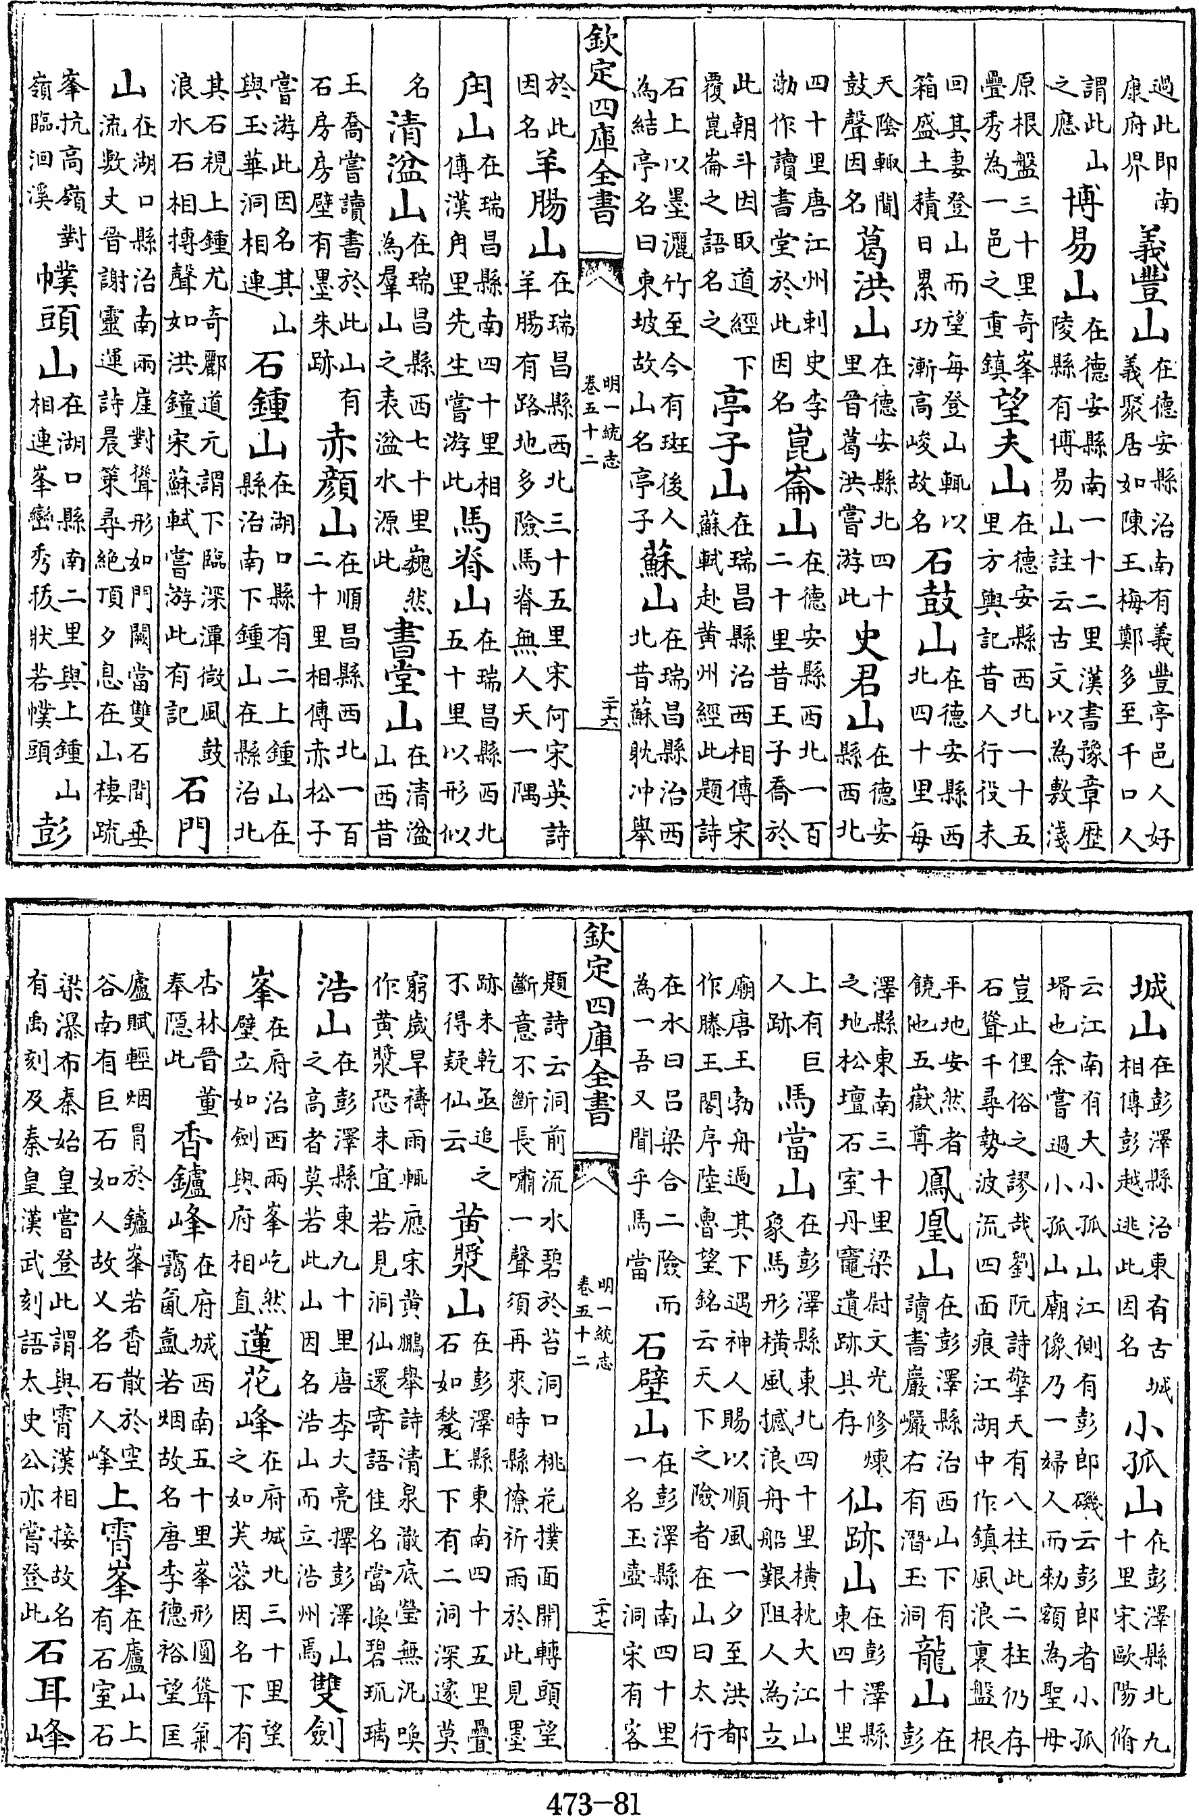 過此即南康府界義豐山在德安縣治南有義豐亭邑人好義聚居如陳王梅鄭多至千口人
謂此山之應博易山在德安縣南一十二里漢書豫章歷陵縣有博易山註云古文以為敷淺
原根盤三十里奇峯疊秀為一邑之重鎮望夫山在德安縣西北一十五里方輿記昔人行役未
回其妻登山而望每登山輒以箱盛土積日累功漸高峻故名石鼓山在德安縣西北四十里每
天陰輒聞鼓聲因名葛洪山在德安縣北四十里晉葛洪嘗游此史君山在德安縣西北
四十里唐江州刺史李渤作讀書堂於此因名崑崙山在德安縣西北一百二十里昔王子喬於
此朝斗因取道經下覆崑崙之語名之亭子山在瑞昌縣治西相傳宋蘇軾赴黄州經此題詩
石上以墨灑竹至今有斑後人為結亭名曰東坡故山名亭子蘇山在瑞昌縣治西北昔蘇耽冲舉
欽定四庫全書
明一統志
卷五十二
二十六
於此因名羊腸山在瑞昌縣西北三十五里宋何宋英詩羊腸有路地多險馬脊無人天一隅
甪山在瑞昌縣南四十里相傳漢甪里先生嘗游此馬脊山在瑞昌縣西北五十里以形似
名清湓山在瑞昌縣西七十里巍然為羣山之表湓水源此書堂山在清湓山西昔
王喬嘗讀書於此山有石房房壁有墨朱跡赤顏山在順昌縣西北一百二十里相傳赤松子
嘗游此因名其山與玉華洞相連石鍾山在湖口縣有二上鍾山在縣治南下鍾山在縣治北
其石視上鍾尤奇酈道元謂下臨深潭微風鼓浪水石相搏聲如洪鐘宋蘇軾嘗游此有記石門
山在湖口縣治南兩崖對聳形如門闕當雙石間垂流數丈晉謝靈運詩晨策尋絕頂夕息在山棲疏
峯抗高嶺對嶺臨洄溪幞頭山在湖口縣南二里與上鍾山相連峯巒秀拔狀若幞頭彭
城山在彭澤縣治東有古城相傳彭越逃此因名小孤山在彭澤縣北九十里宋歐陽脩
云江南有大小孤山江側有彭郎磯云彭郎者小孤壻也余嘗過小孤山廟像乃一婦人而勑額為聖母
豈止俚俗之謬哉劉阮詩擎天有八柱此二柱仍存石聳千尋勢波流四面痕江湖中作鎮風浪裏盤根
平地安然者饒他五嶽尊鳳凰山在彭澤縣治西山下有讀書巖巖右有潛玉洞龍山在彭
澤縣東南三十里梁尉文光修煉之地松壇石室丹竈遺跡具存仙跡山在彭澤縣東四十里
上有巨人跡馬當山在彭澤縣東北四十里横枕大江山象馬形横風撼浪舟船艱阻人為立
廟唐王勃舟過其下遇神人賜以順風一夕至洪都作滕王閣序陸魯望銘云天下之險者在山曰太行
在水曰吕梁合二險而為一吾又聞乎馬當石壁山在彭澤縣南四十里一名玉壺洞宋有客
欽定四庫全書
明一統志
卷五十二
二十七
題詩云洞前流水碧於苔洞口桃花撲面開轉頭望斷意不斷長嘯一聲須再來時縣僚祈雨於此見墨
跡未乾亟追之不得疑仙云黄漿山在彭澤縣東南四十五里疊石如甃上下有二洞深邃莫
窮歲旱禱雨輒應宋黄鵬舉詩清泉澈底瑩無泥喚作黄漿恐未宜若見洞仙還寄語佳名當煥碧琉璃
浩山在彭澤縣東九十里唐李大亮擇彭澤山之高者莫若此山因名浩山而立浩州焉雙劍
峯在府治西兩峯屹然壁立如劍與府相直蓮花峰在府城北三十里望之如芙蓉因名下有
杏林晉董奉隱此香鑪峰在府城西南五十里峯形圓聳氣靄氤氲若烟故名唐李德裕望匡
廬賦輕烟冐於鑪峯若香散於空谷南有巨石如人故又名石人峰上霄峯在廬山上有石室石
梁瀑布秦始皇嘗登此謂與霄漢相接故名有禹刻及秦皇漢武刻語太史公亦嘗登此石耳峰
473-81